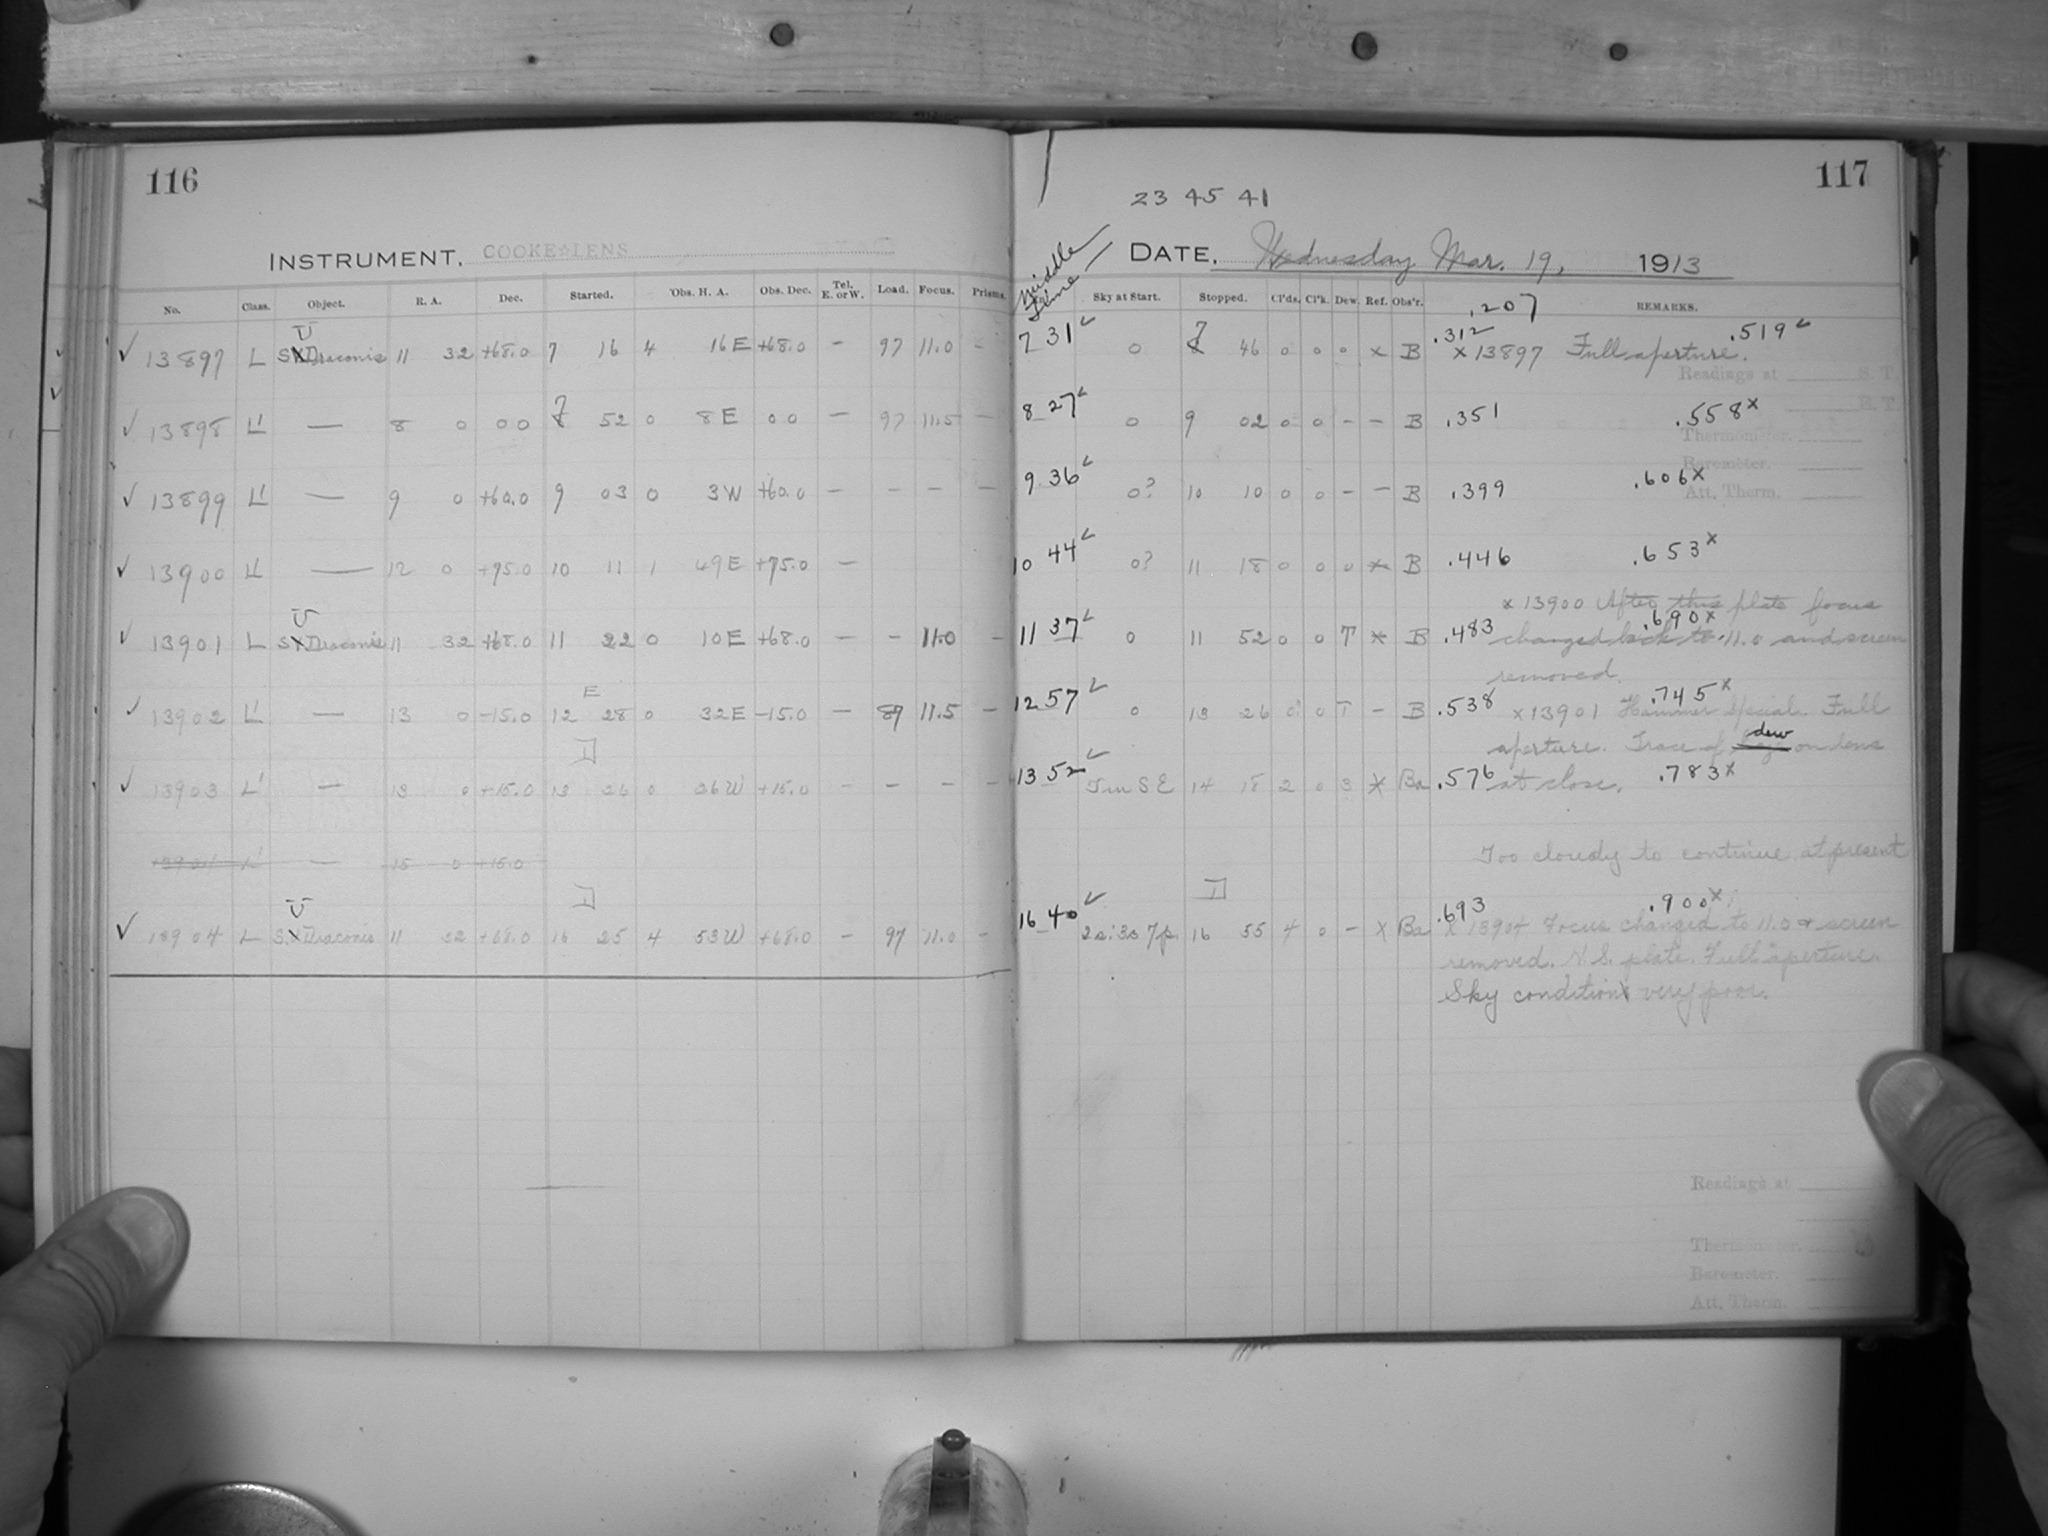 116
INSTRUMENT. COOKE LENS
No. Class. Object. R. A. Dec. Started. Obs. H. A. Obs. Dec. Tel. E. or W. Load. Focus. Prisms.
✓ 13897 L SU Draconis 11 32 +68.0 7 16 4 16 E +68.0 – 97 11.0 –
✓ 13898 L' — 8 0 0 0 7 52 0 8 E 0 0 – 97 11.5 –
✓ 13899 L' — 9 0 +60.0 9 03 0 3 W +60.0 – – – –
✓ 13900 L' — 12 0 +75.0 10 11 1 49 E +75.0 –
✓ 13901 L SU Draconis 11 32 +68.0 11 22 0 10 E +68.0 – – 11.0 –
E
✓ 13902 L' — 13 0 –15.0 12 28 0 32 E –15.0 – 89 11.5 –
✓ 13903 L' — 13 0 +15.0 13 26 0 26 W +15.0 – – – –
13904 L' — 15 0 +15.0
✓ 13904 L SU Draconis 11 32 +68.0 16 25 4 53 W +68.0 – 97 11.0 –
117
23 45 41
DATE. Wednesday Mar. 19, 1913
Middle Time Sky at Start. Stopped. Cl'ds. Cl'k. Dew. Ref. Obs'r. .207 REMARKS.
7 31 0 7 46 0 0 0 x B .312 .519
x 13897 Full aperture.
Readings at S. T.
8 27 0 9 02 0 0 – – B .351 .558 x
Thermometer.
Barometer.
9 36 0? 10 10 0 0 – – B .399 .606 x
Att. Therm.
10 44 0? 11 18 0 0 0 x B .446 .653 x
x 13900 After this plate focus
11 37 0 11 52 0 0 T x B .483 .690 x
changed back to 11.0 and screen
removed.
12 57 0 13 26 0 0 T – B .538 .745 x
x 13901 Hammer Special. Full
aperture. Trace of dew on lens
13 52 J in S E 14 18 2 0 3 x Ba .576 at close. .783 x
Too cloudy to continue at present
16 40 16 55 4 0 – x Ba .693 .900 x
x 13904 Focus changed to 11.0 & screen
removed. H. S. plate. Full aperture.
Sky condition very poor.
Readings at
Thermometer.
Barometer.
Att. Therm.